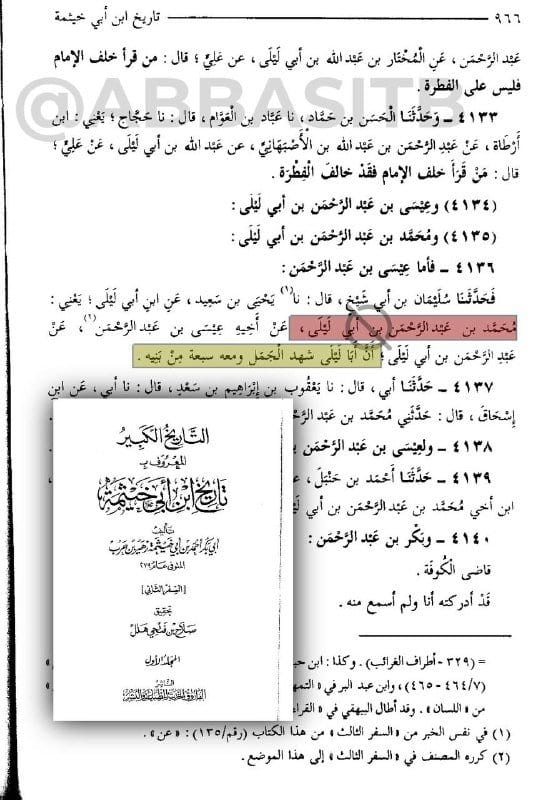 ٩٦٦ تاريخ ابن أبي خيثمة
@ABBASITB
عَبْد الرَّحْمَن ، عَنِ الْمُخْتَار بن عَبْد الله بن أبي لَيْلَى ، عن عَلِيٍّ ؛ قال : من قرأ خلف الإمام
فليس على الفطرة .
٤١٣٣ – وَحَدَّثَنَا الْحَسَن بن حَمَّاد ، نا عَبَّاد بن الْعَوَّام ، قال : نا حَجَّاج ؛ يَعْنِي : ابن
أَرْطَاة ، عَنْ عَبْدِ الرَّحْمَن بن عَبْد الله بن الْأَصْبَهَانِيِّ ، عن عَبْد الله بن أبي لَيْلَى ، عَنْ عَلِيٍّ ؛
قال : مَنْ قَرَأَ خلف الإمام فقَدْ خالفَ الْفِطْرَة .
(٤١٣٤) وعِيْسَى بن عَبْد الرَّحْمَن بن أبي لَيْلَى :
(٤١٣٥) ومُحَمَّد بن عَبْد الرَّحْمَن بن أبي لَيْلَى :
٤١٣٦ – فأما عِيْسَى بن عَبْد الرَّحْمَن :
فَحَدَّثَنَا سُلَيْمَان بن أبي شَيْخ ، قال : نا(١) يَحْيَى بن سَعِيد ، عَنِ ابنِ أبي لَيْلَى ؛ يَعْنِي :
مُحَمَّد بن عَبْد الرَّحْمَن بن أبي لَيْلَى ، عَنْ أَخِيهِ عِيْسَى بن عَبْد الرَّحْمَن ، عَنْ
عَبْدِ الرَّحْمَن بن أبي لَيْلَى ؛ أَنَّ أَبَا لَيْلَى شهد الْجَمَل ومعه سبعة مِنْ بَنِيه .
٤١٣٧ – حَدَّثَنَا أبي ، قال : نا يَعْقُوب بن إِبْرَاهِيم بن سَعْدٍ ، قال : نا أبي ، عَنِ ابن
إِسْحَاقَ ، قال : حَدَّثَنِي مُحَمَّد بن عَبْد الرَّحْمَ
٤١٣٨ – ولعِيْسَى بن عَبْد الرَّحْمَن
٤١٣٩ – حَدَّثَنَا أَحْمَد بن حَنْبَلَ ،
ابن أخي مُحَمَّد بن عَبْد الرَّحْمَن بن أبي لَيْ
٤١٤٠ – وبَكْر بن عَبْد الرَّحْمَن :
قاضى الْكُوفَة .
قَدْ أدركته أنا ولم أسمع منه .
التاريخ الكبير
المعروف بـ
تاريخ ابن أبي خيثمة
تأليف
أبي بكر أحمد بن أبي خيثمة زهير بن حرب
المتوفى عام ٢٧٩
[السفر الثاني]
تحقيق
صلاح بن فتحي هلل
المجلد الأول
الناشر
الفاروق الحديثة للطباعة والنشر
= (٣٢٩ - أطراف الغرائب) . وكذا : ابن حب
(٤٦٤/٧-٤٦٥) ، وابن عبد البر في « التمه
من « اللسان » . وقد أطال البيهقي في « القرا
(١) في نفس الخبر من « السفر الثالث » من هذا الكتاب (رقم/١٣٥) : « عن » .
(٢) كرره المصنف في « السفر الثالث » إلى هذا الموضع .